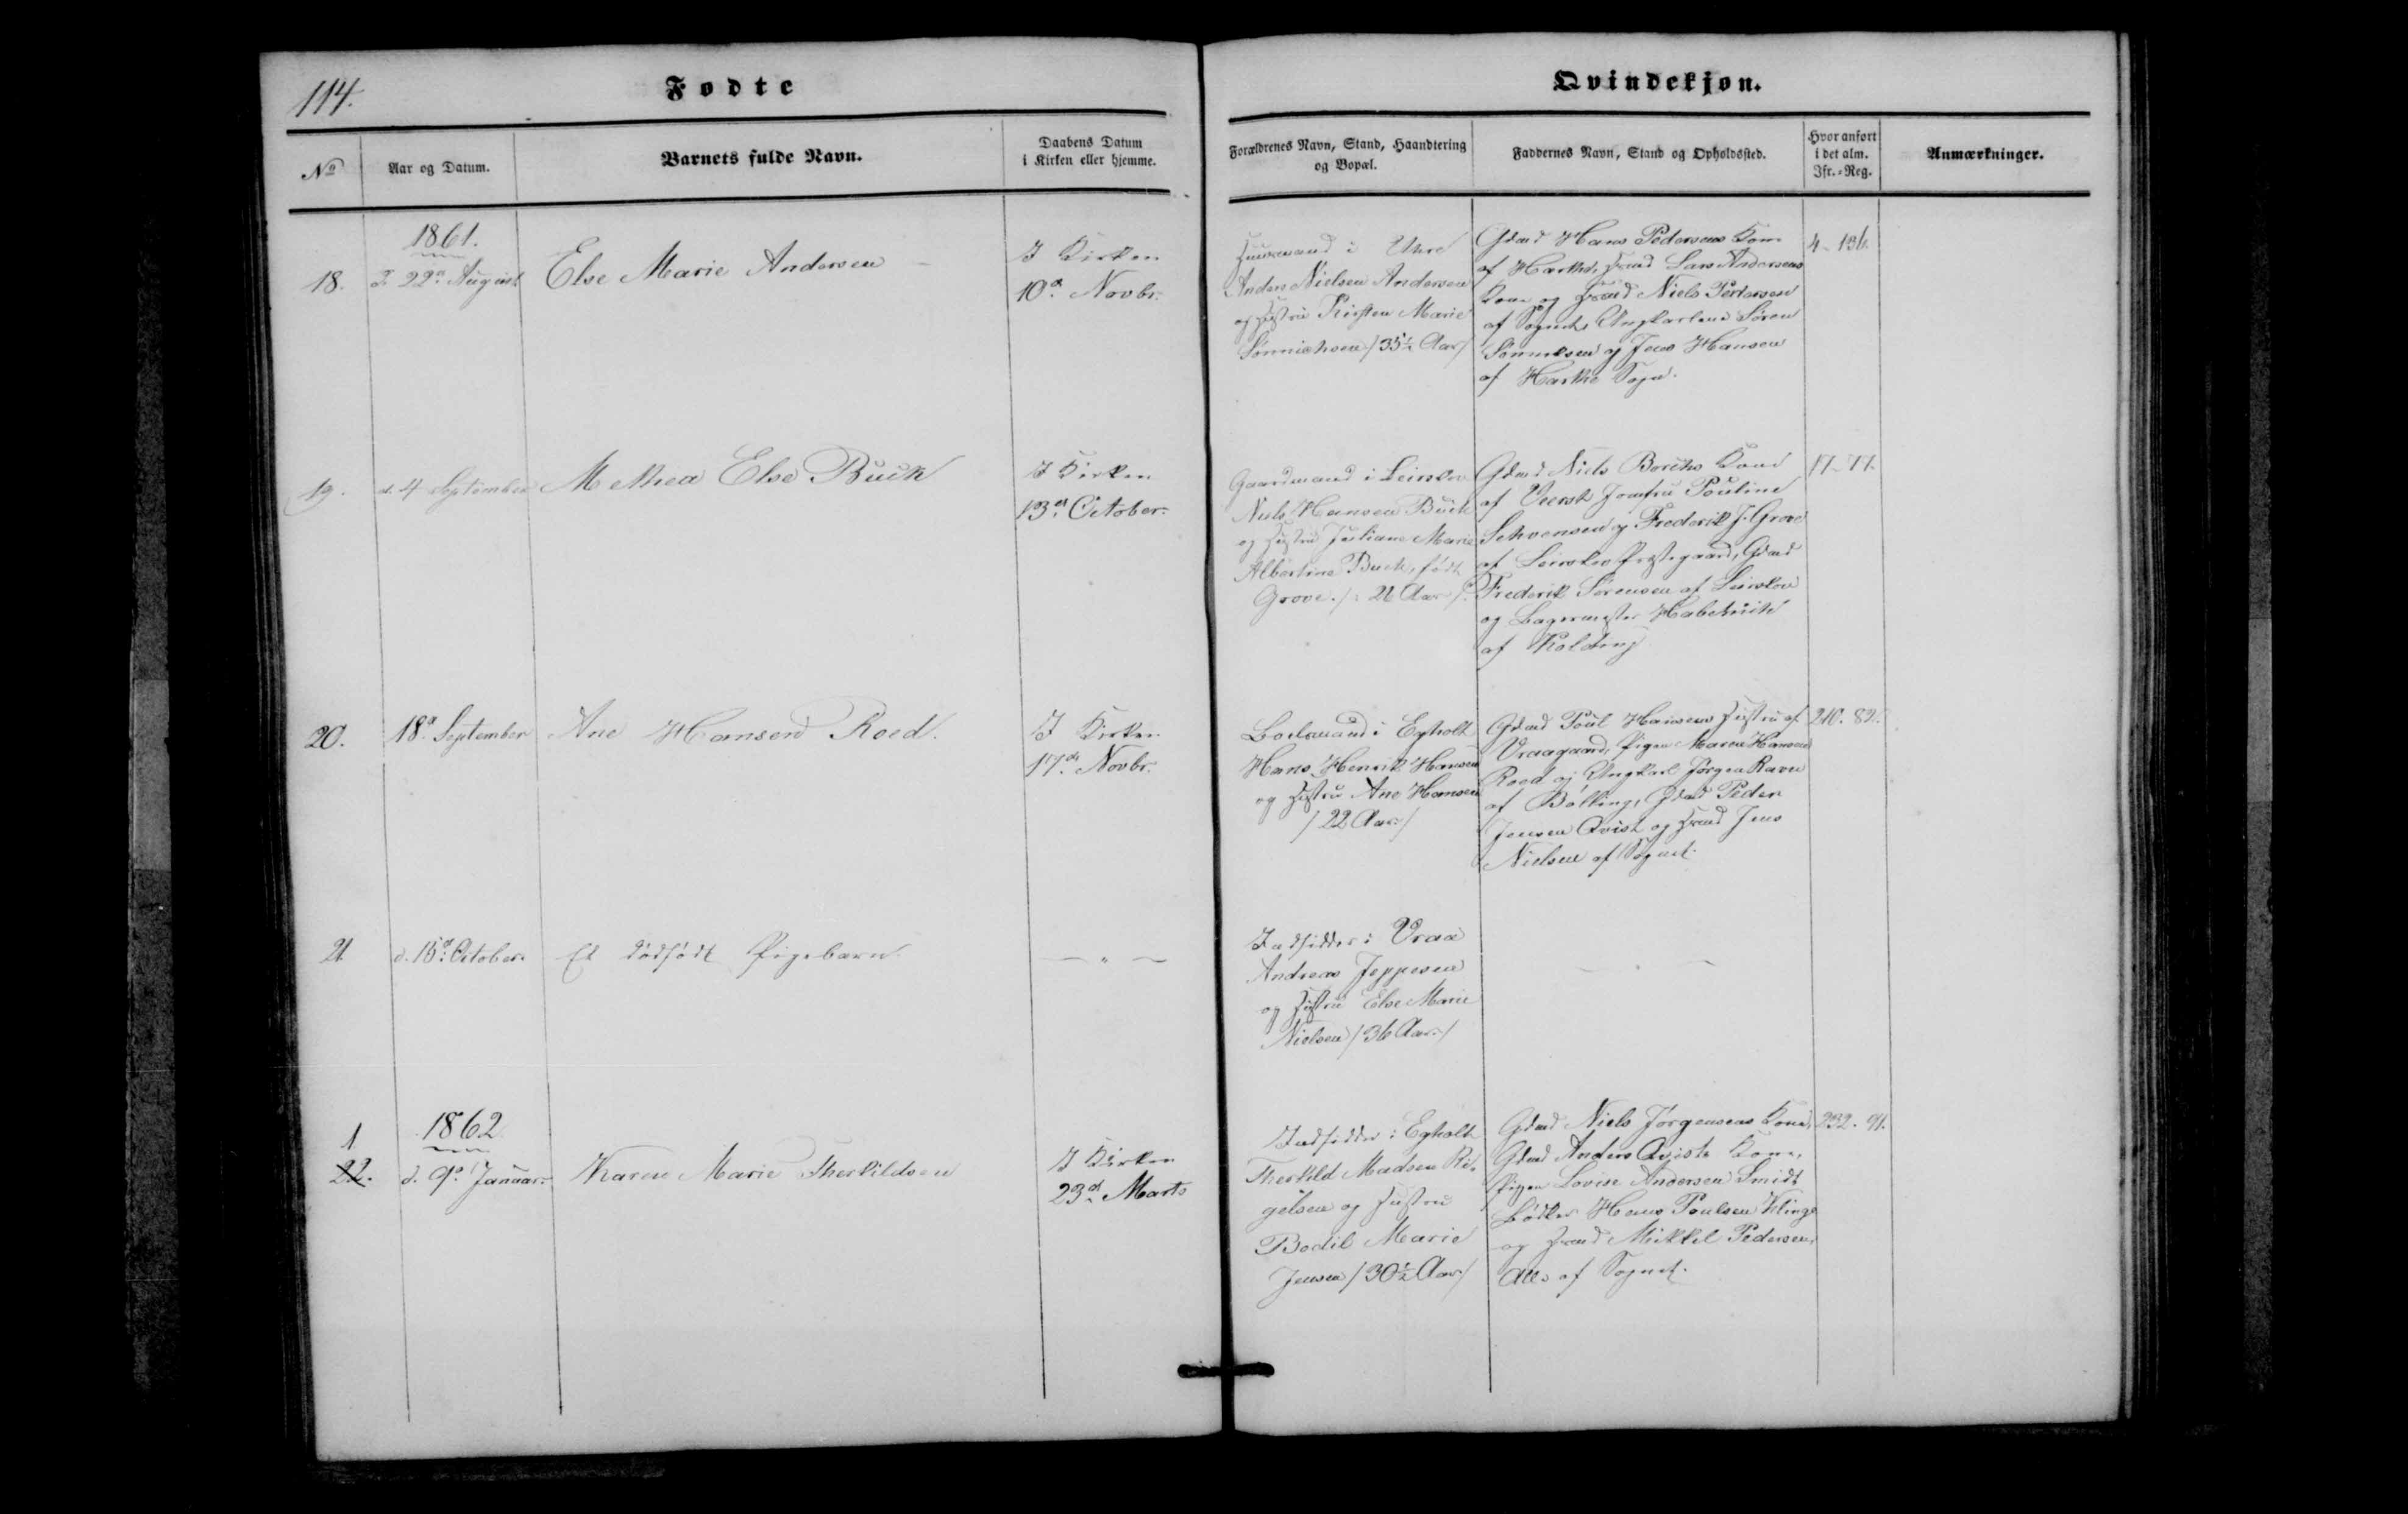 114.
Fødte
Qvindekjøn.
No
Aar og Datum.
Barnets fulde Navn.
Daabens Datum
i Kirken eller hjemme.
Forældrenes Navn, Stand, Haandtering
og Bopæl.
Faddernes Navn, Stand og Opholdssted.
Hvor anført
i det alm.
Jfr.-Reg.
Anmærkninger.
1861.
18.
d. 22d August
Else Marie Andersen
I Kirken
10d Novbr.
Huusmand i Uhre
Anders Nielsen Andersen
og Hustru Kirsten Marie
Sønnichsen /35½ Aar/
Gdmd Hans Pedersens Kone
af Harthe, Hmd Lars Andersens
Kone og Hmd Niels Pedersen
af Sognet, Ungkarlene Søren
Sønniksen og Jens Hansen
af Harthe Sogn.
4-136.
19.
d. 4 September
Methea Else Buck
I Kirken
13d October.
Gaardmand i Leirskov
Niels Hansen Buck
og Hustru Juliane Marie
Albertine Buck, født
Grove. /: 21 Aar /.
Gdmd Niels Borchs Kone
af Veerst Jomfru Pouline
Schvensen og Frederik J. Grove
af Leirskov Præstegaard, Gdmd
Frederik Sørensen af Leirskov
og Bagermester
af Kolding
17-77.
20.
18d September
Ane Hansen Roed.
I Kirken
17d Novbr.
Boelsmand i Egholt
Hans Henrik Hansen
og Hustru Ane Hansen
/22 Aar:/
Gdmd Poul Hansens Hustru af
Vraagaard, Pigen Maren Hansen
Roed og Ungkarl Jørgen Ravn
af Bølling, Gdmd Peder
Jensen Qvist og Hmd Jens
Nielsen af Sognet.
210. 82.
21
d. 15d October.
Et dødfødt Pigebarn.
— " —
Indsidder i Vraa
Andreas Jeppesen
og Hustru Else Marie
Nielsen /36 Aar:/
— " —
1862
1
22.
d. 9d Januar.
Karen Marie Therkildsen
I Kirken
23d Marts
Indsidder i Egholt
Therkild Madsen Ri-
gelsen og Hustru
Bodil Marie
Jensen /30½ Aar/
Gdmd Niels Jørgensens Kone,
Gdmd Anders Qvists Kone,
Pigen Lovise Andersen Smidt
Bødker Hans Poulsen Klinge
og Hmd Mikkel Pedersen,
Alle af Sognet.
232. 91.